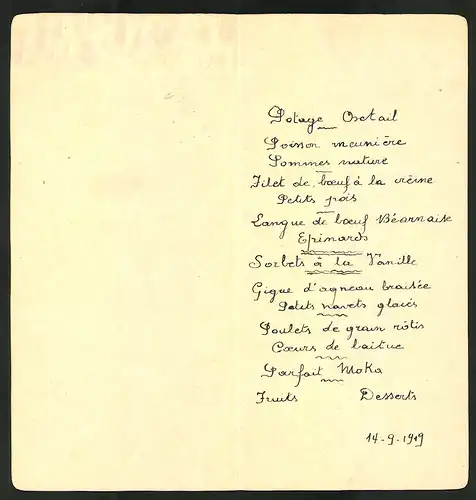 Potage Oxtail
Poisson meunière
Pommes nature
Filet de bœuf à la reine
Petits pois
Langue de bœuf Béarnaise
Epinards
Sorbets à la Vanille
Gigue d'agneau braisée
Petits navets glacés
Poulets de grain rôtis
Cœurs de laitue
Parfait Moka
Fruits Desserts
14-9-1919